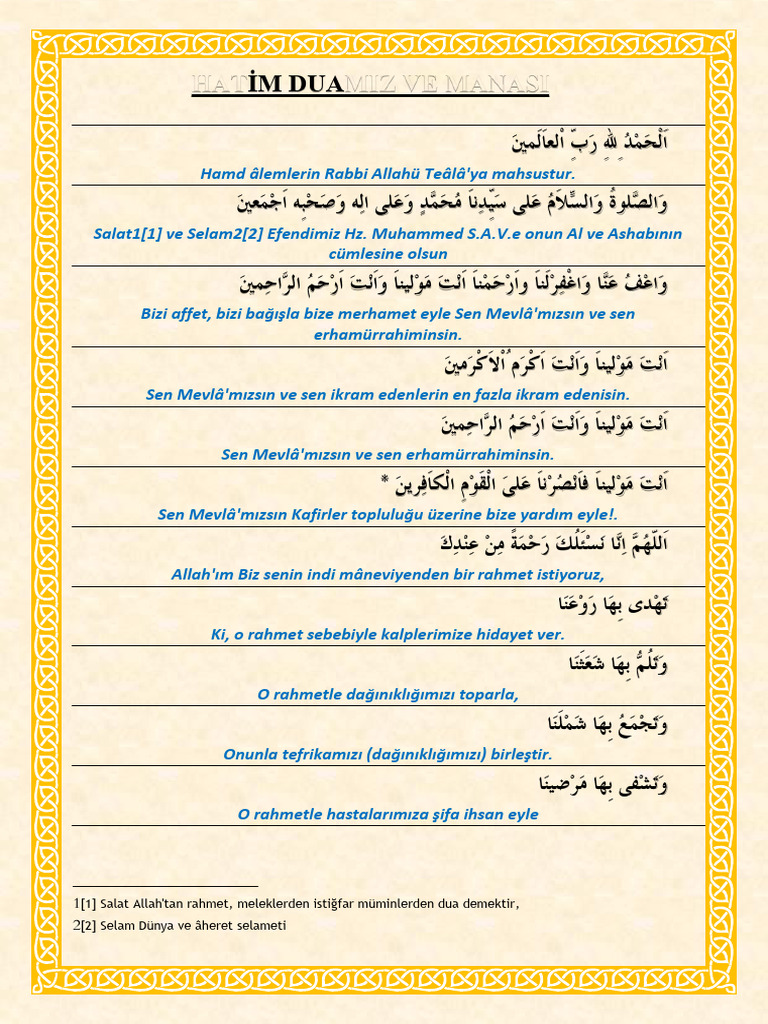 HATİM DUAMIZ VE MANASI
اَلْحَمْدُ لِلّٰهِ رَبِّ الْعاَلَمينَ
Hamd âlemlerin Rabbi Allahü Teâlâ'ya mahsustur.
وَالصَّلوةُ وَالسَّلاَمُ عَلى سَيِّدِناَ مُحَمَّدٍ وَعَلى الِه وَصَحْبِه اَجْمَعينَ
Salat1[1] ve Selam2[2] Efendimiz Hz. Muhammed S.A.V.e onun Al ve Ashabının
cümlesine olsun
وَاعْفُ عَنَّا وَاغْفِرْلَناَ واَرْحَمْناَ اَنْتَ مَوْليناَ وَاَنْتَ اَرْحَمُ الرَّاحِمينَ
Bizi affet, bizi bağışla bize merhamet eyle Sen Mevlâ'mızsın ve sen
erhamürrahiminsin.
اَنْتَ مَوْليناَ وَاَنْتَ اَكْرَمُ اْلاَكْرَمينَ
Sen Mevlâ'mızsın ve sen ikram edenlerin en fazla ikram edenisin.
اَنْتَ مَوْليناَ وَاَنْتَ اَرْحَمُ الرَّاحِمينَ
Sen Mevlâ'mızsın ve sen erhamürrahiminsin.
اَنْتَ مَوْليناَ فاَنْصُرْناَ عَلىَ الْقَوْمِ الْكاَفِرينَ *
Sen Mevlâ'mızsın Kafirler topluluğu üzerine bize yardım eyle!.
اَللّهُمَّ اِنَّا نَسْئَلُكَ رَحْمَةً مِنْ عِنْدِكَ
Allah'ım Biz senin indi mâneviyenden bir rahmet istiyoruz,
تَهْدى بِهَا رَوْعَنَا
Ki, o rahmet sebebiyle kalplerimize hidayet ver.
وَتَلُمُّ بِهَا شَعَثَنَا
O rahmetle dağınıklığımızı toparla,
وَتَجْمَعُ بِهَا شَمْلَنَا
Onunla tefrikamızı (dağınıklığımızı) birleştir.
وَتَشْفى بِهَا مَرْضينَا
O rahmetle hastalarımıza şifa ihsan eyle
1[1] Salat Allah'tan rahmet, meleklerden istiğfar müminlerden dua demektir,
2[2] Selam Dünya ve âheret selameti